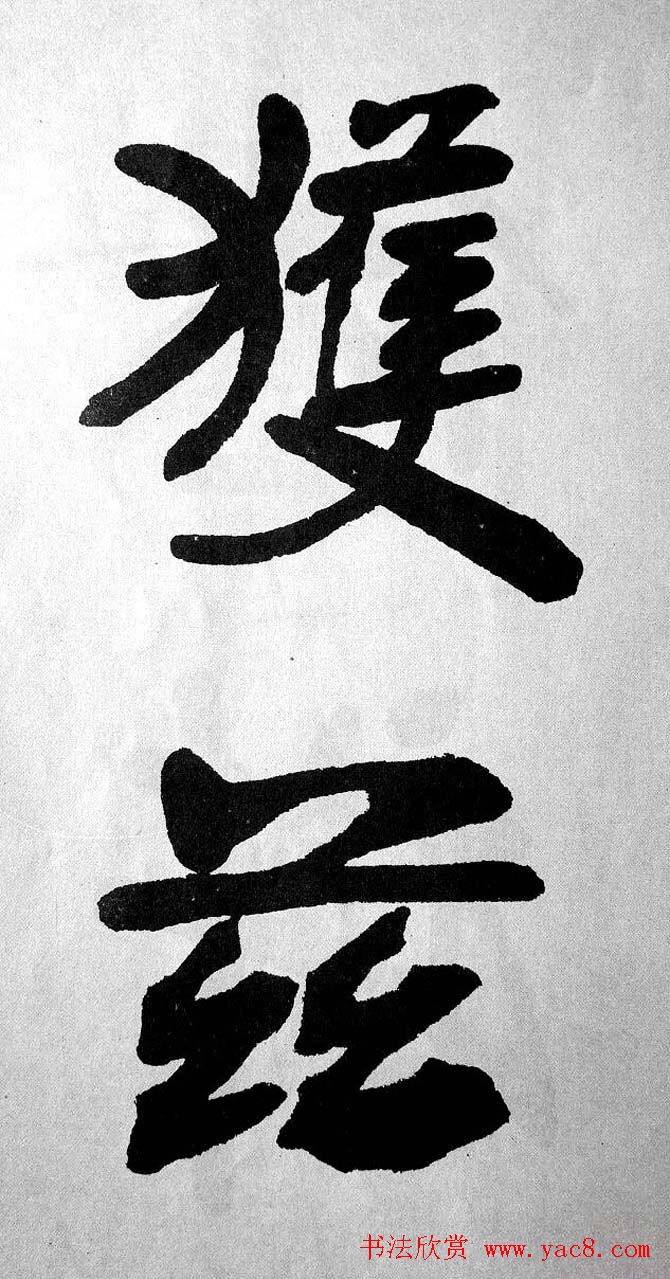 獲
兹
书法欣赏 www.yac8.com